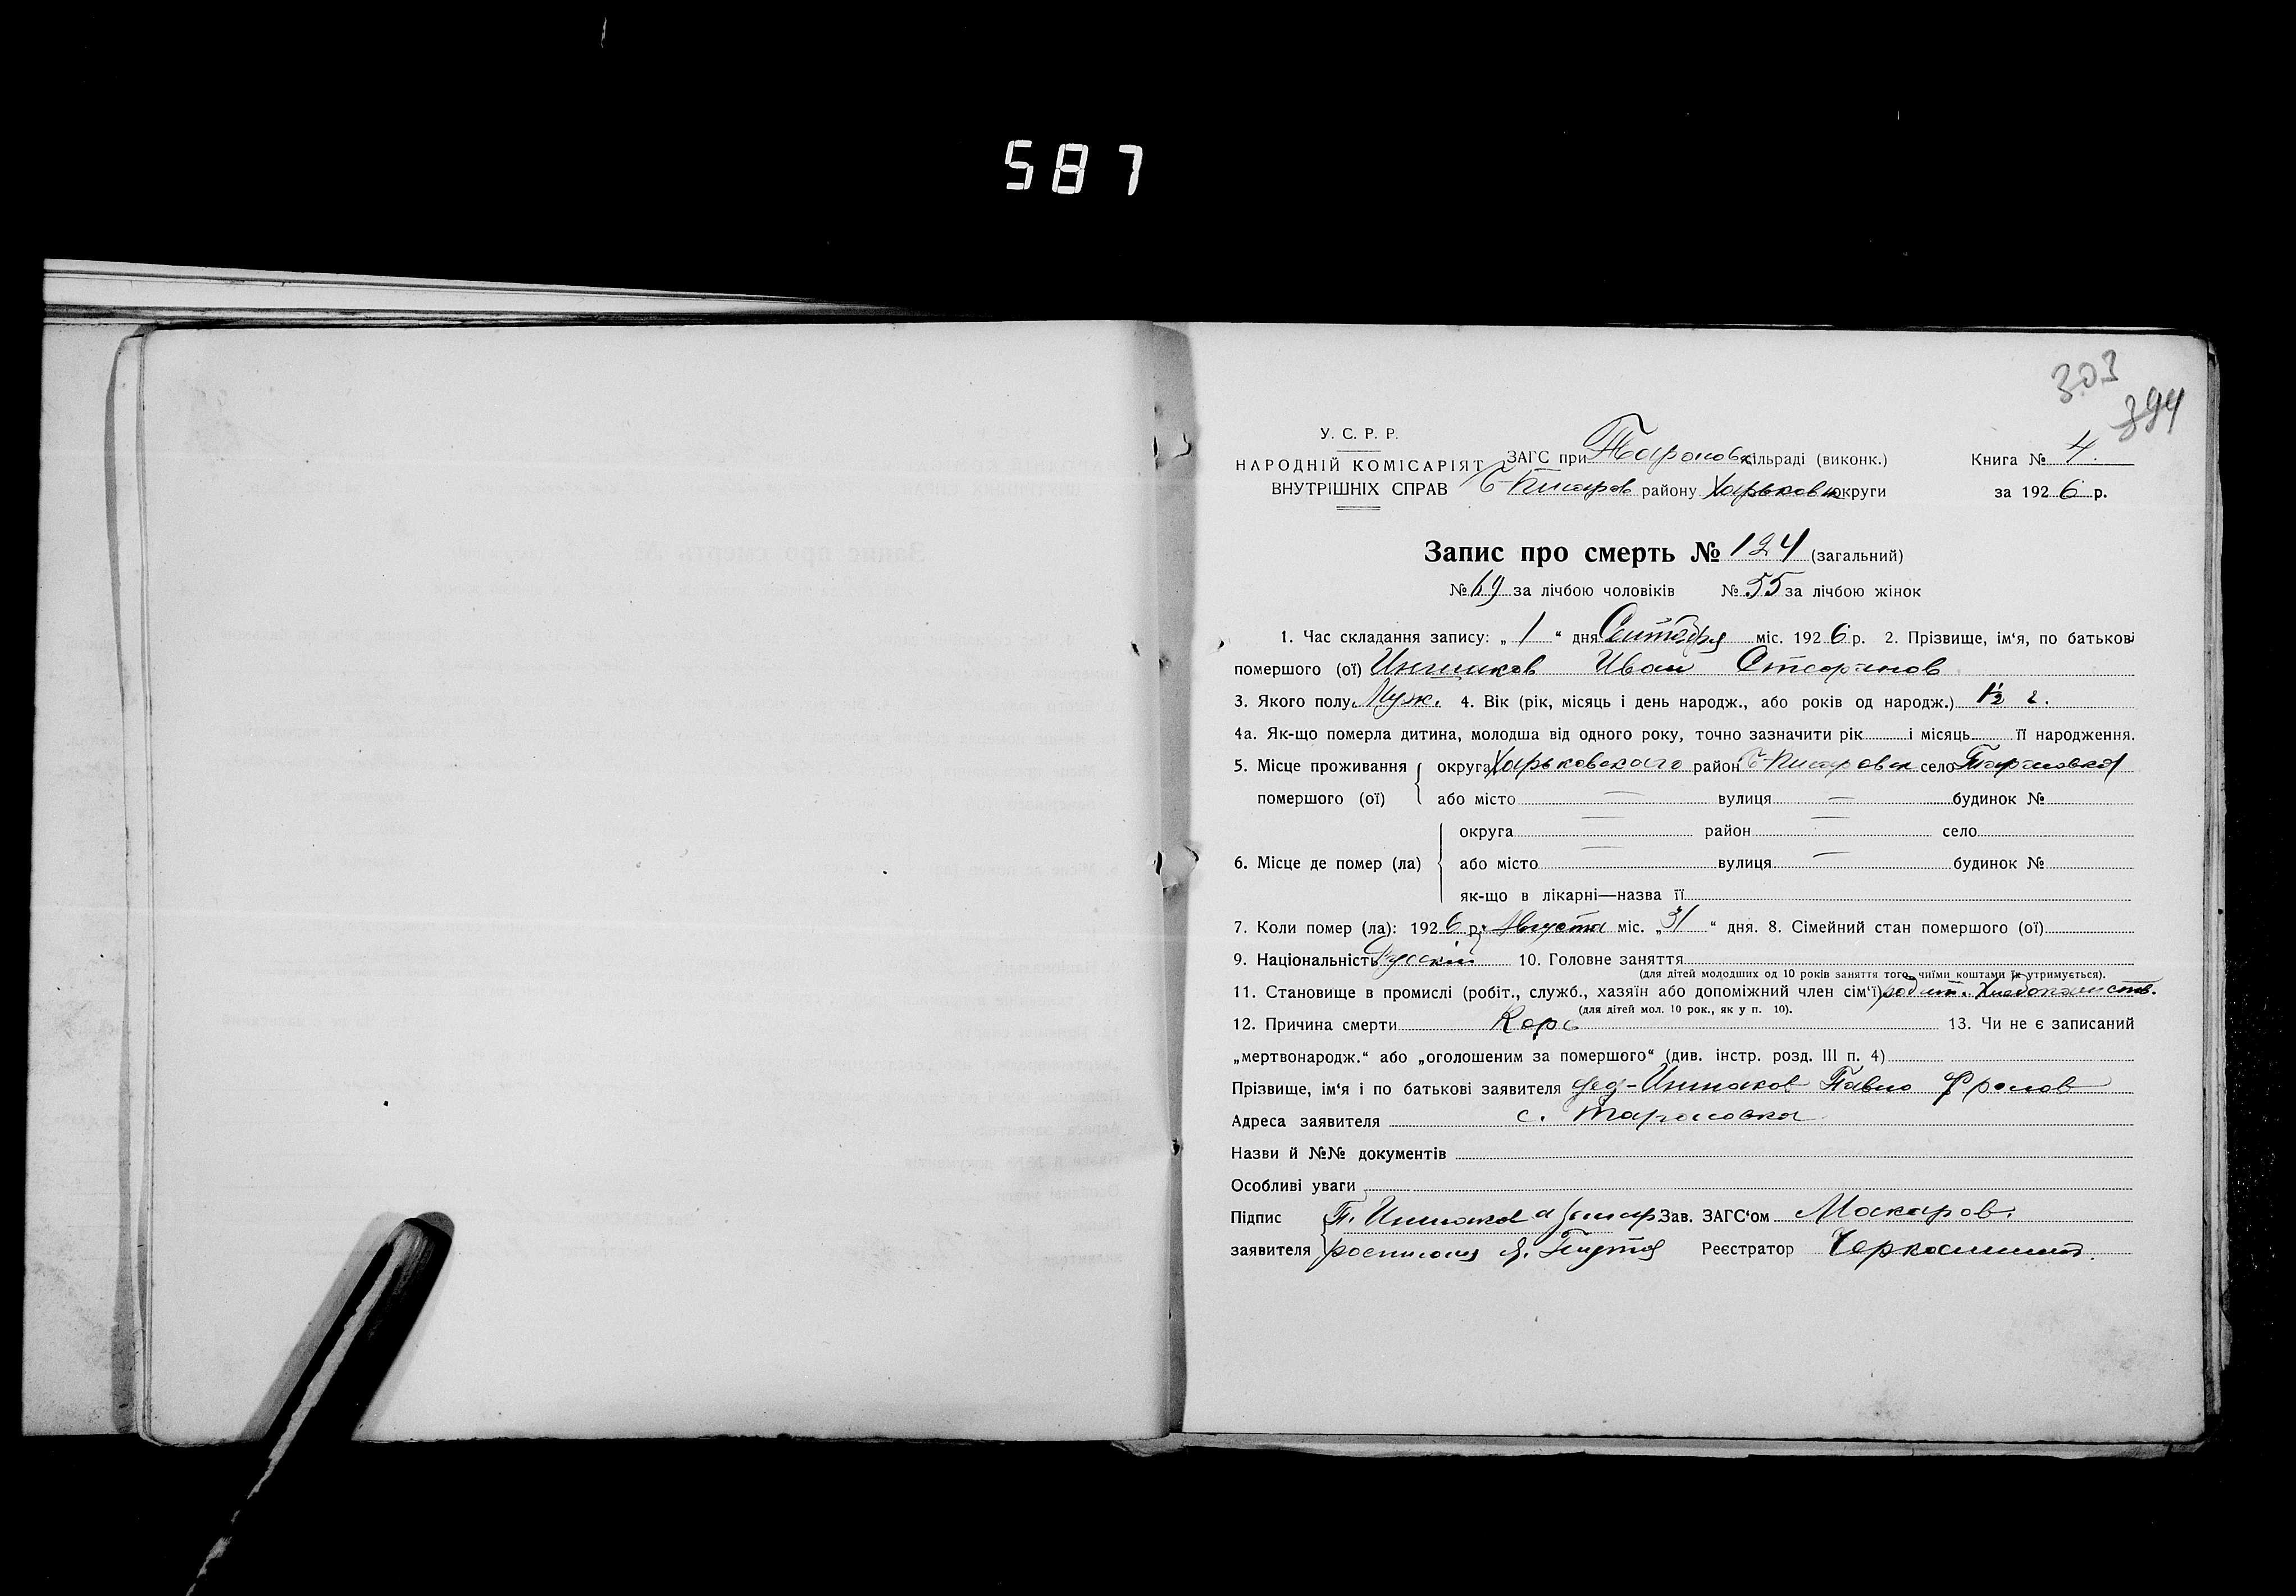 587
303
394
У. С. Р. Р.
НАРОДНІЙ КОМІСАРІЯТ
ВНУТРІШНІХ СПРАВ
ЗАГС при Тарановск сільраді (виконк.)
районy Харьковск округи
Книга № 4.
за 1926 р.
Запис про смерть № 124 (загальний)
№ 69 за лічбою чоловіків № 55 за лічбою жінок
1. Час складання запису: „1“ дня Сентября міс. 1926 р. 2. Прізвище, ім‘я, по батькові
помершого (ої) Иван Стефанов
3. Якого полу Муж. 4. Вік (рік, місяць і день народж., або років од народж.) 1½ г.
4а. Як-що померла дитина, молодша від одного року, точно зазначити рік і місяць її народження.
5. Місце проживання округа Харьковского район село Тарановка
помершого (ої) або місто — вулиця — будинок №
округа — район — село
6. Місце де помер (ла) або місто — вулиця — будинок №
як-що в лікарні—назва її
7. Коли помер (ла): 1926 р. Августа міс. „31“ дня. 8. Сімейний стан помершого (ої)
9. Національність Русский 10. Головне заняття
(для дітей молодших од 10 років заняття того, чиїми коштами їх утримується).
11. Становище в промислі (робіт., служб., хазяїн або допоміжний член сім‘ї) родит. Хлебопашеств.
(для дітей мол. 10 рок., як у п. 10).
12. Причина смерти Корь 13. Чи не є записаний
„мертвонародж.“ або „оголошеним за помершого“ (див. інстр. розд. III п. 4)
Прізвище, ім‘я і по батькові заявителя дед - Павло Фролов
Адреса заявителя с. Тарановка
Назви й №№ документів
Особливі уваги
Підпис П. Зав. ЗАГС‘ом Макаров.
заявителя Реєстратор